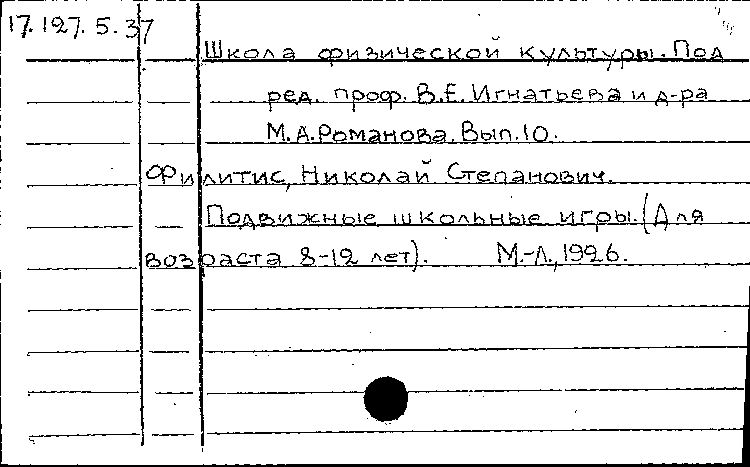 17.127.5.37
Школа физической культуры. Под
ред. проф. В.Е. Игнатьева и д-ра
М.А. Романова. Вып. 10.
Филитис, Николай Степанович.
Подвижные школьные игры. (Для
возраста 8-12 лет). М.-Л., 1926.